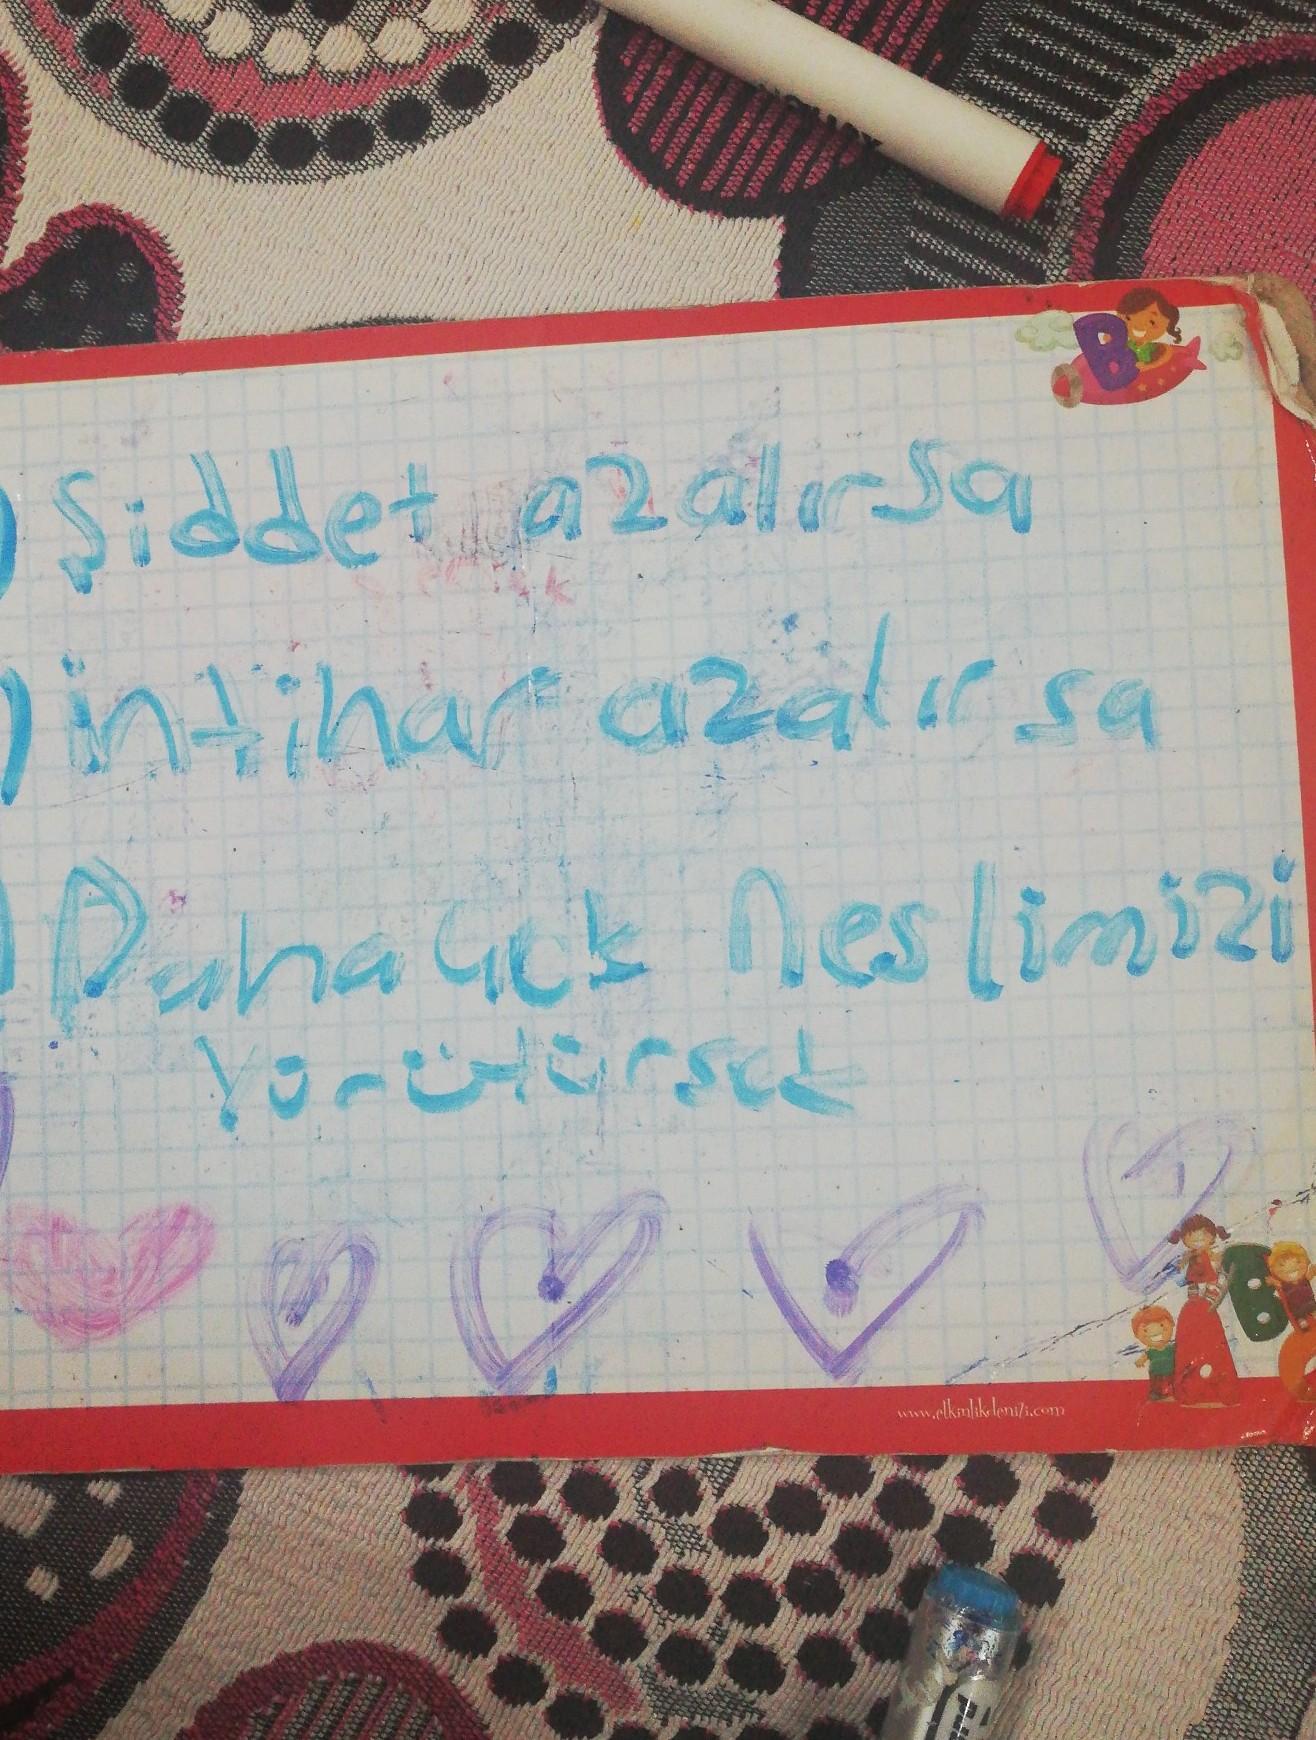 ) Şiddet azalırsa
) intihar azalırsa
) Daha çok neslimizi
Yürütürsek
www.etkinlikdenizi.com